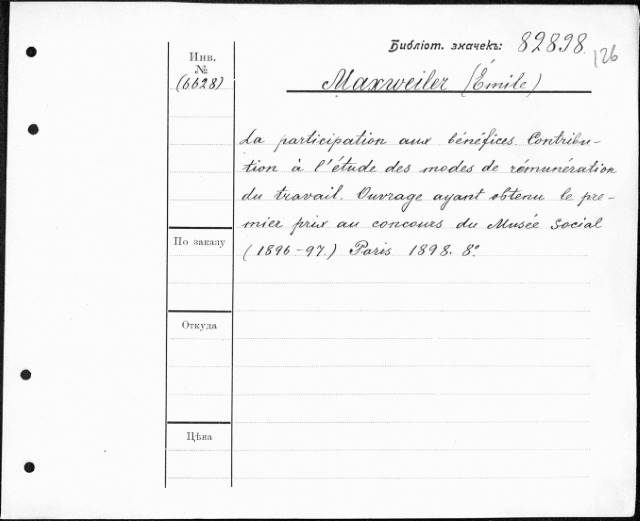 Библіот. значекъ: 82898.
126
Инв.
№
(6628)
Maxweiler (Émile)
La participation aux bénéfices. Contribu-
tion à l'étude des modes de rémunération
du travail. Ouvrage ayant obtenu le pre-
mier prix au concours du Musée Social
(1896-97.) Paris 1898. 8°.
По заказу
Откуда
Цѣна